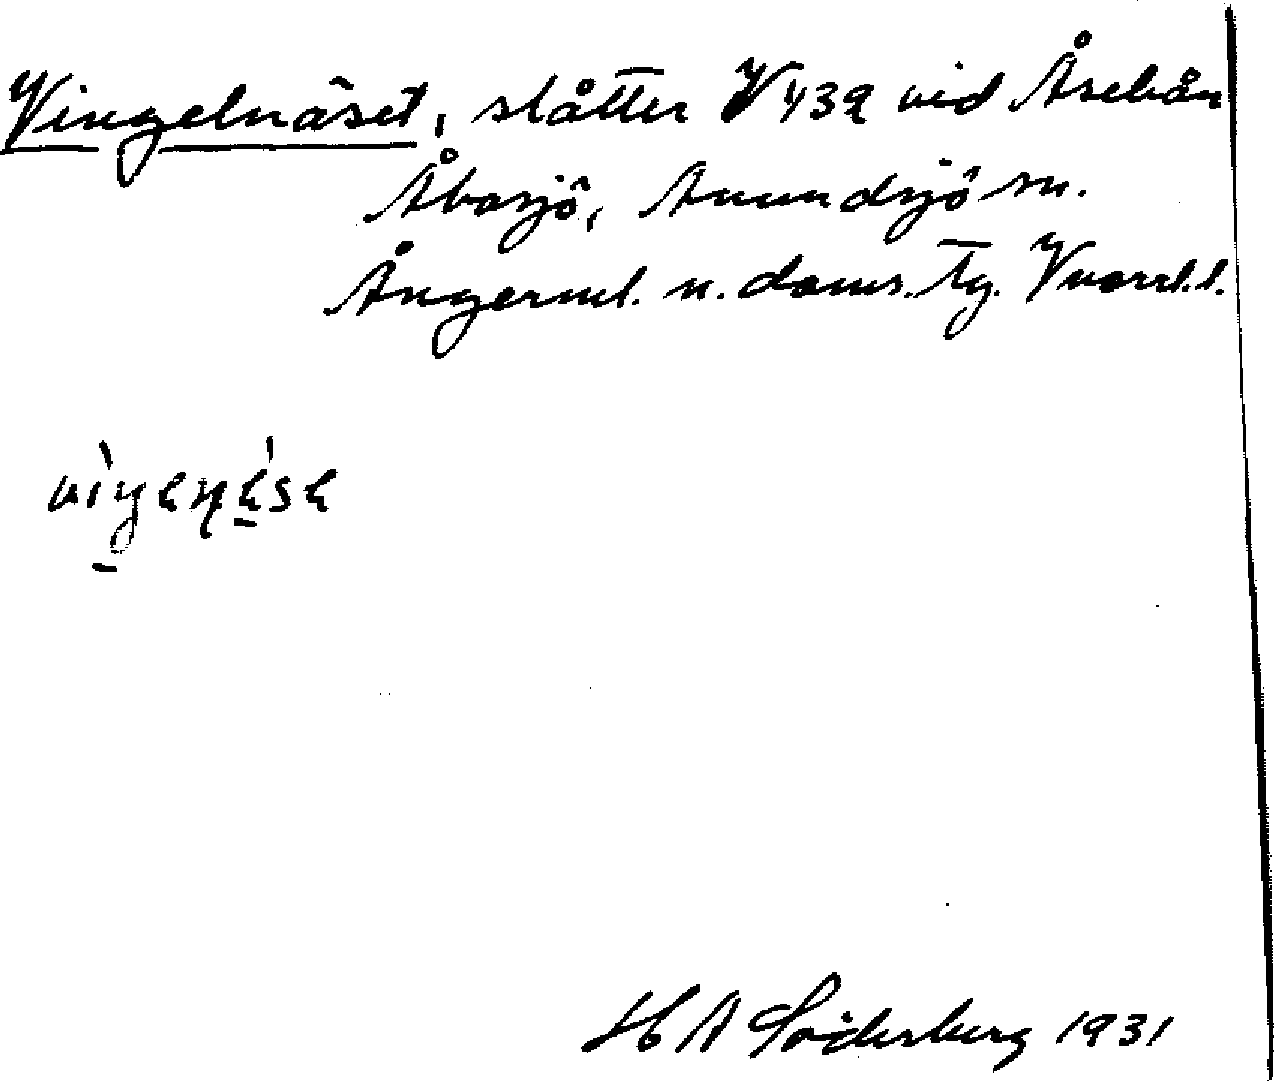 Vingelnäset, slåtter V 439 vid Åseleån
Åbosjö, Anundsjö sn.
Ångerml. n. doms. Tg. Vnorrl. l.
H A Söderberg 1931